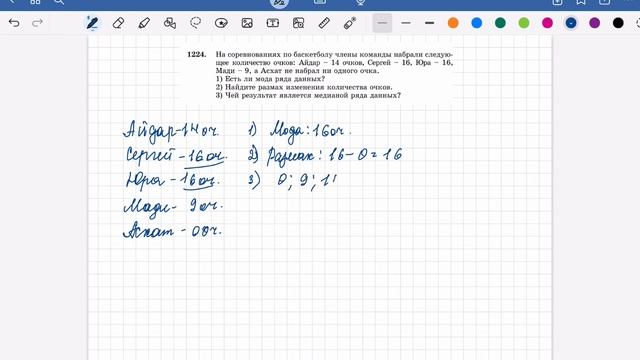 1224. На соревнованиях по баскетболу члены команды набрали следую-
щее количество очков: Айдар – 14 очков, Сергей – 16, Юра – 16,
Мади – 9, а Асхат не набрал ни одного очка.
1) Есть ли мода ряда данных?
2) Найдите размах изменения количества очков.
3) Чей результат является медианой ряда данных?
Айдар-14 оч.
Сергей - 16 оч.
Юра - 16 оч.
Мади - 9 оч.
Асхат - 0 оч.
1) Мода: 16 оч.
2) Размах: 16 - 0 = 16
3) 0; 9; 1